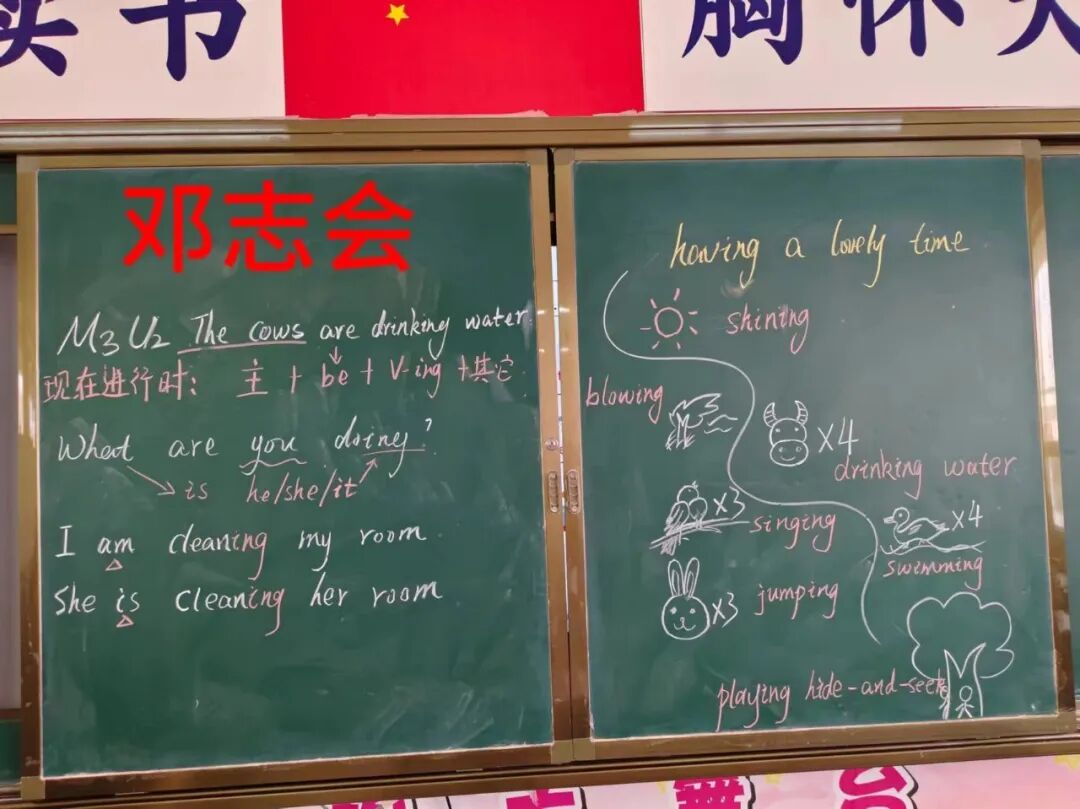 读书
胸怀天
邓志会
M3U2 The cows are drinking water.
现在进行时： 主 + be + V-ing + 其它
What are you doing?
is he/she/it
I am cleaning my room.
She is cleaning her room
having a lovely time
shining
blowing
×4
drinking water
×3
singing
×4
swimming
×3 jumping
playing hide-and-seek